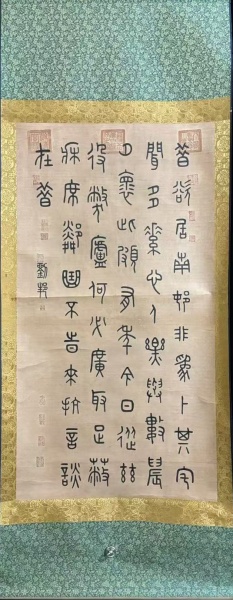 昔欲居南邨非為卜其宅
聞多素心人樂與數晨
夕懷此頗有年今日從茲
役弊廬何必廣取足蔽
牀席鄰曲不時來抗言談
在昔